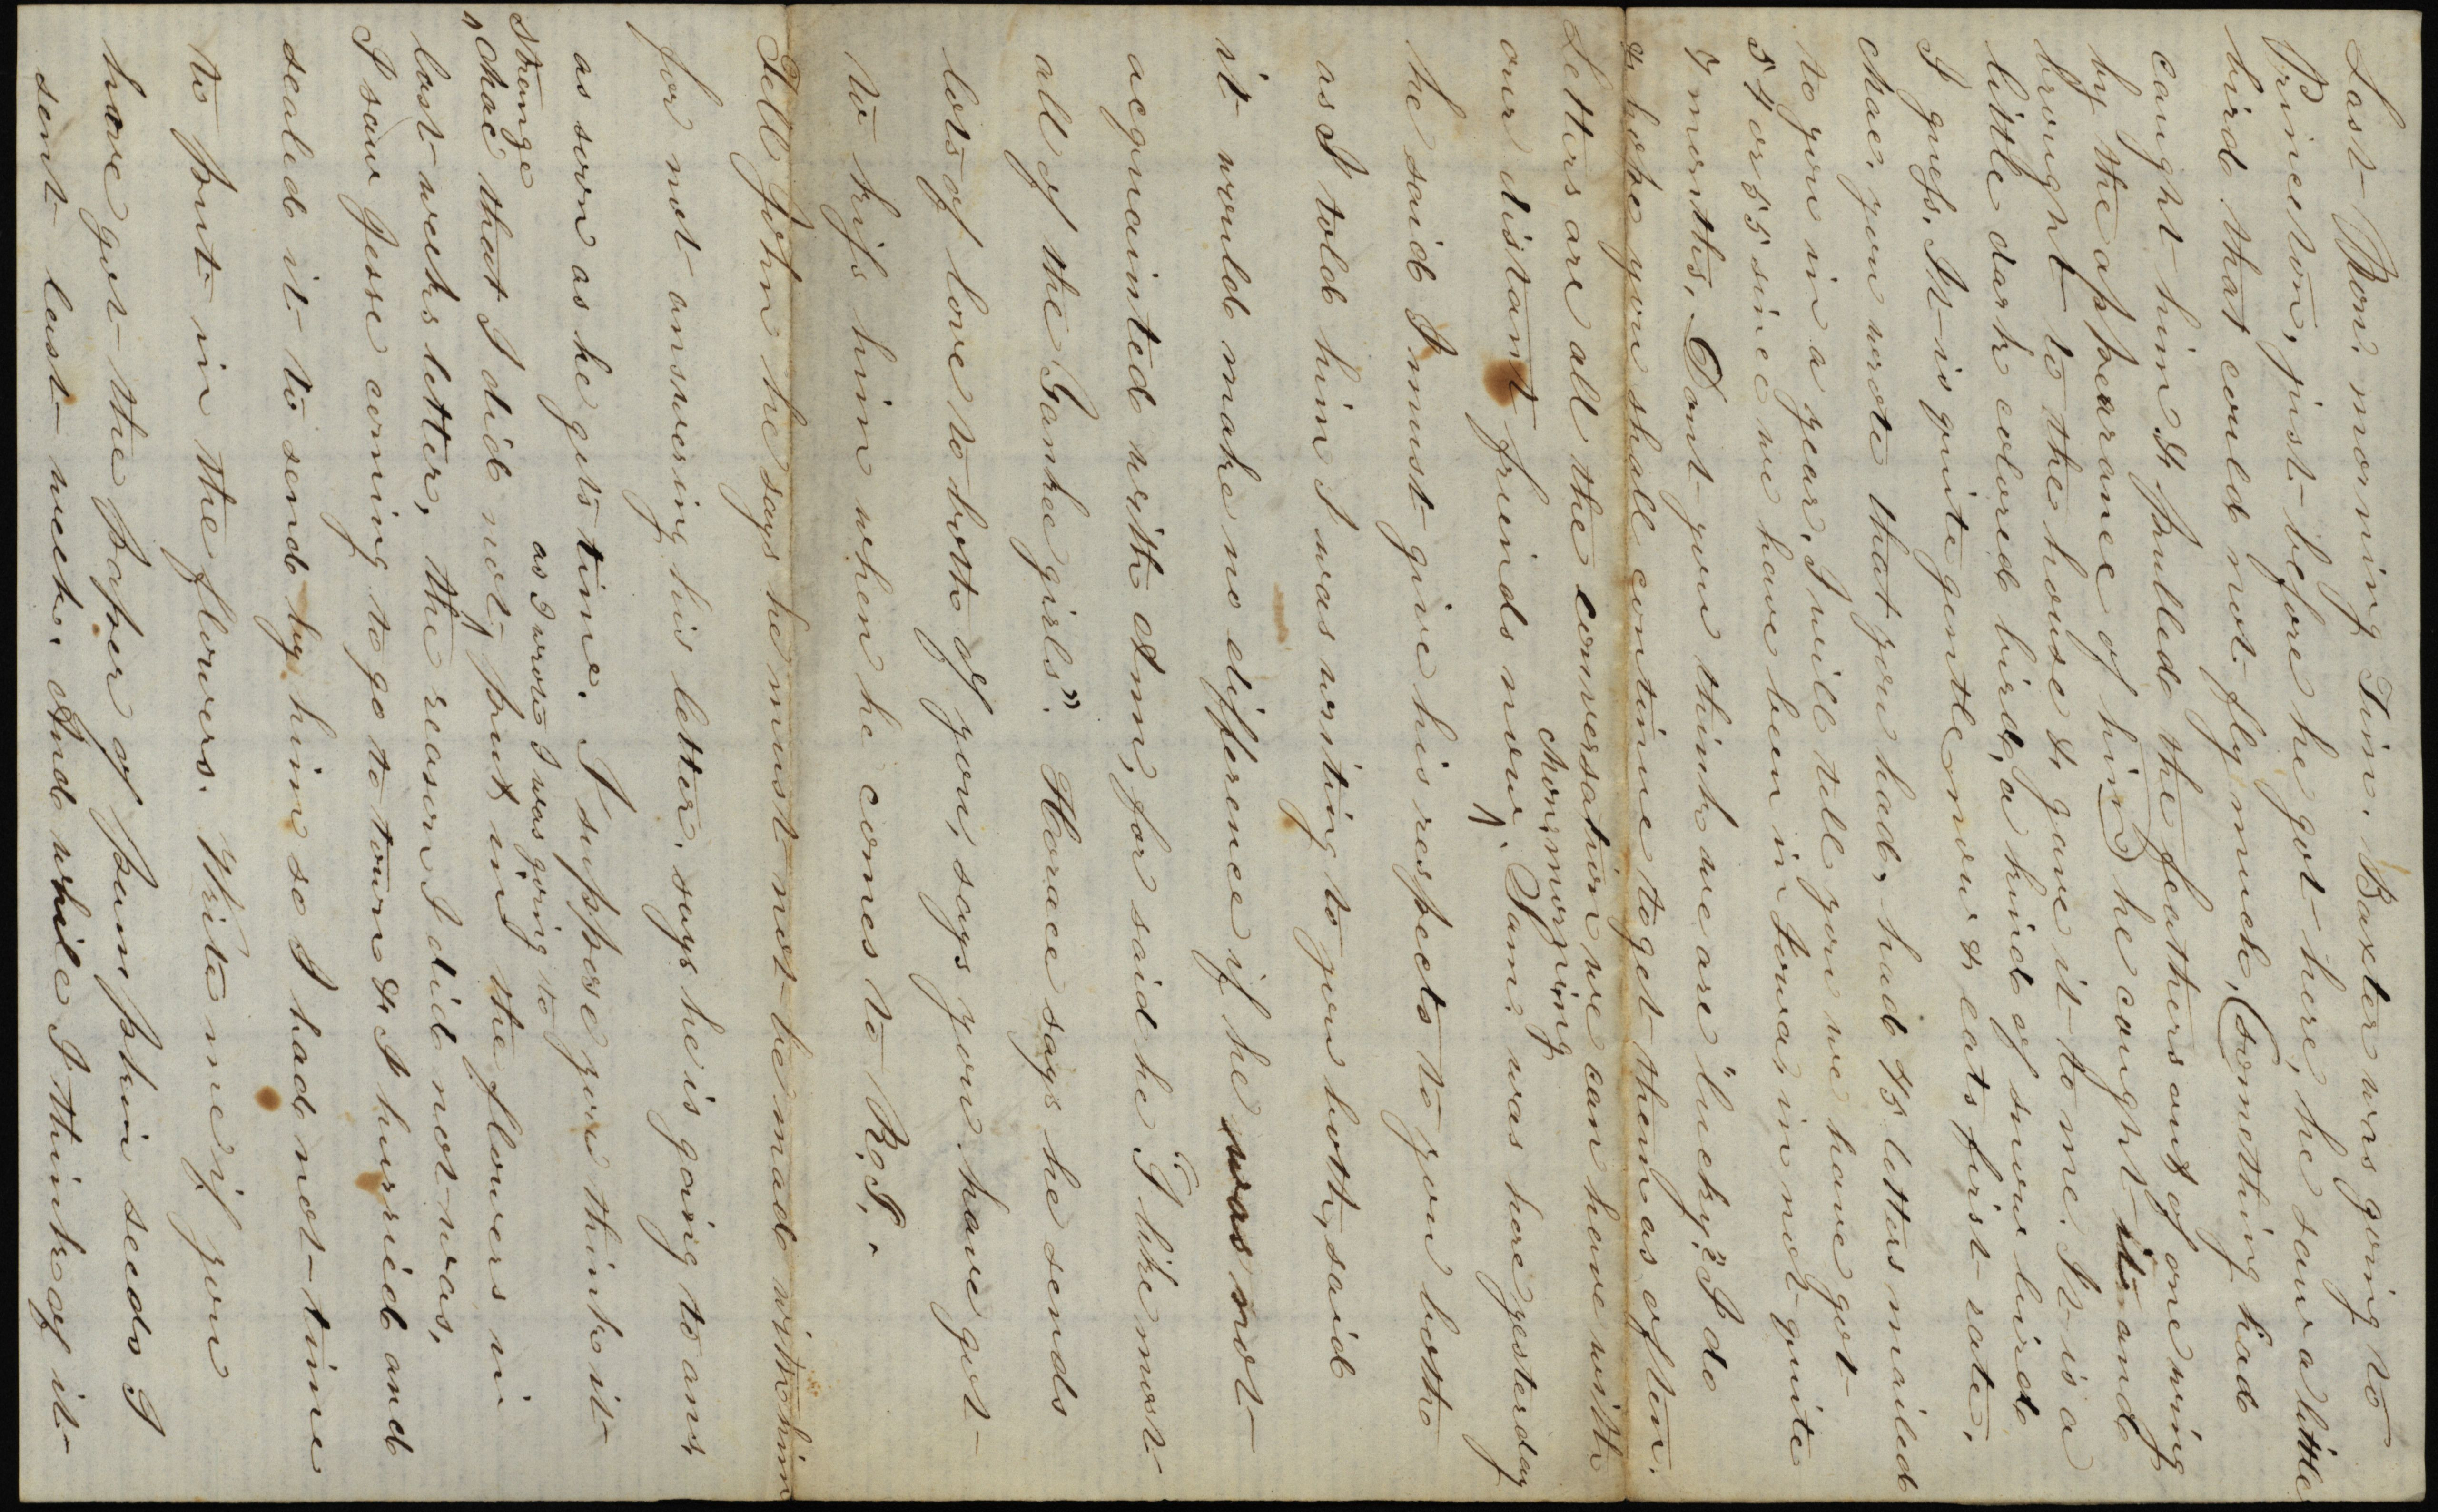 Last Mon. morning Tim. Baxter was going to
Princeton, just before he got here, he saw a little
bird that could not fly much, (something had
caught him & pulled the feathers out of one wing
by the appearance of him) he caught it and
brought to the house & gave it to me. It is a
little dark colored bird, a kind of snow bird
I guess. It is quite gentle now & eats first rate.
Chac. you wrote that you had, had 45 letters mailed
to you in a year, I will tell you we have got
54 or 55 since we have been in Iowa, in not quite
7 months. Dont you think we are "lucky," I do
& hope you shall continue to get them as often.
Letters are all the conversation we can have with
our distant friends now. Sam. was here yesterday
Mon. morning
he said I must give his respects to you both
as I told him I was writing to you both, said
it would make no difference if he was not
acquainted with Am, for said he "I like most
all of the Yankee girls". Horace says he sends
lots of love to both of you, says you have got
to kiss him when he comes to R.I.
Tell John he says he must not be mad with him
for not answering his letter, says he is going to ans
as soon as he gets time. I suppose you think it
strange
Chac that I did not, put in the flowers in
as I wrote I was going to
last weeks letter, the reason I did not was,
I saw Jesse coming to go to town & I hurried and
sealed it to send by him so I had not time
to put in the flowers. Write me if you
have got the paper of pumpkin seeds I
sent last week. And while I think of it